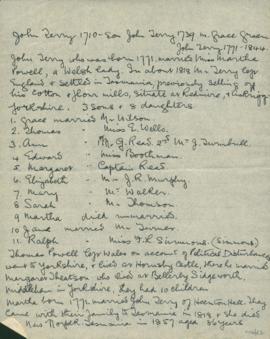 John Terry 1710 - Son John Terry 1739 m. Grace Green
John Terry 1771-1844
John Terry who was born 1771, married Miss Martha
Powell, a Welsh lady. In about 1818 Mr Terry left
England & settled in Tasmania, previously selling off
his Cotton & flour mills, situate at Redmire, &
Yorkshire. 3 sons & 8 daughters.
1. Grace married Mr Wilson.
2. Thomas " Miss E. Wells.
3. Ann " Mr G. Read. 2nd Mr J. Turnbull.
4. Edward " Miss Boothman.
5. Margaret " Captain Read.
6. Elizabeth " Mr J. R. Murphy.
7. Mary " Mr Walker.
8. Sarah " Mr Thomson.
9. Martha died unmarried.
10 Jane married Mr Turner.
11. Ralph " Miss F. L. Simmons. (Simmons)
Thomas Powell left Wales on account of Political Disturbances
went to Yorkshire, & lived at Hornsby Castle, there he married
Margaret Theatson who lived at Bellerby
Middleham in Yorkshire, they had 10 children
Martha born 1771 married John Terry of Hall. They
came with their family to Tasmania in 1818 & she died
New Norfolk Tasmania in 1857 aged 86 years